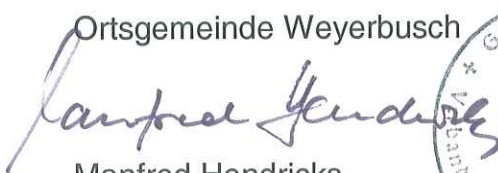 Ortsgemeinde Weyerbusch
Manfred Hendricks
Manfred Hendricks